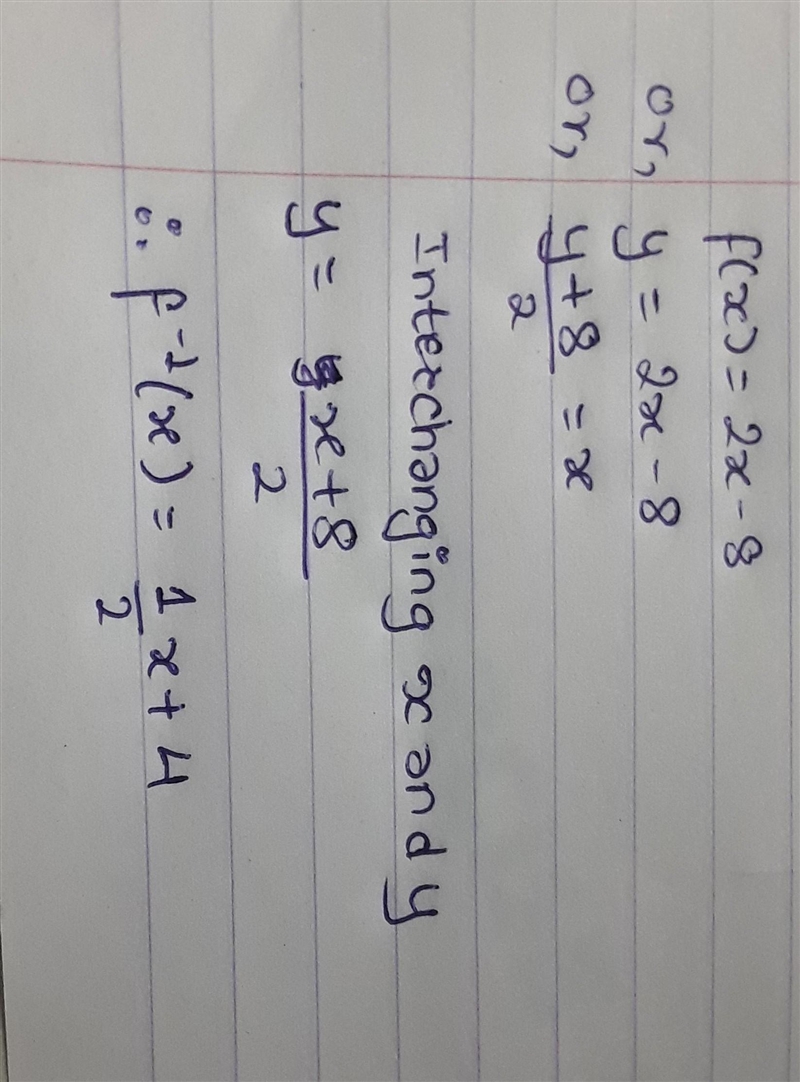 f(x) = 2x - 8
or, y = 2x - 8
or, y + 8 / 2 = x
Interchanging x and y
y = x + 8 / 2
∴ f⁻¹(x) = 1/2 x + 4